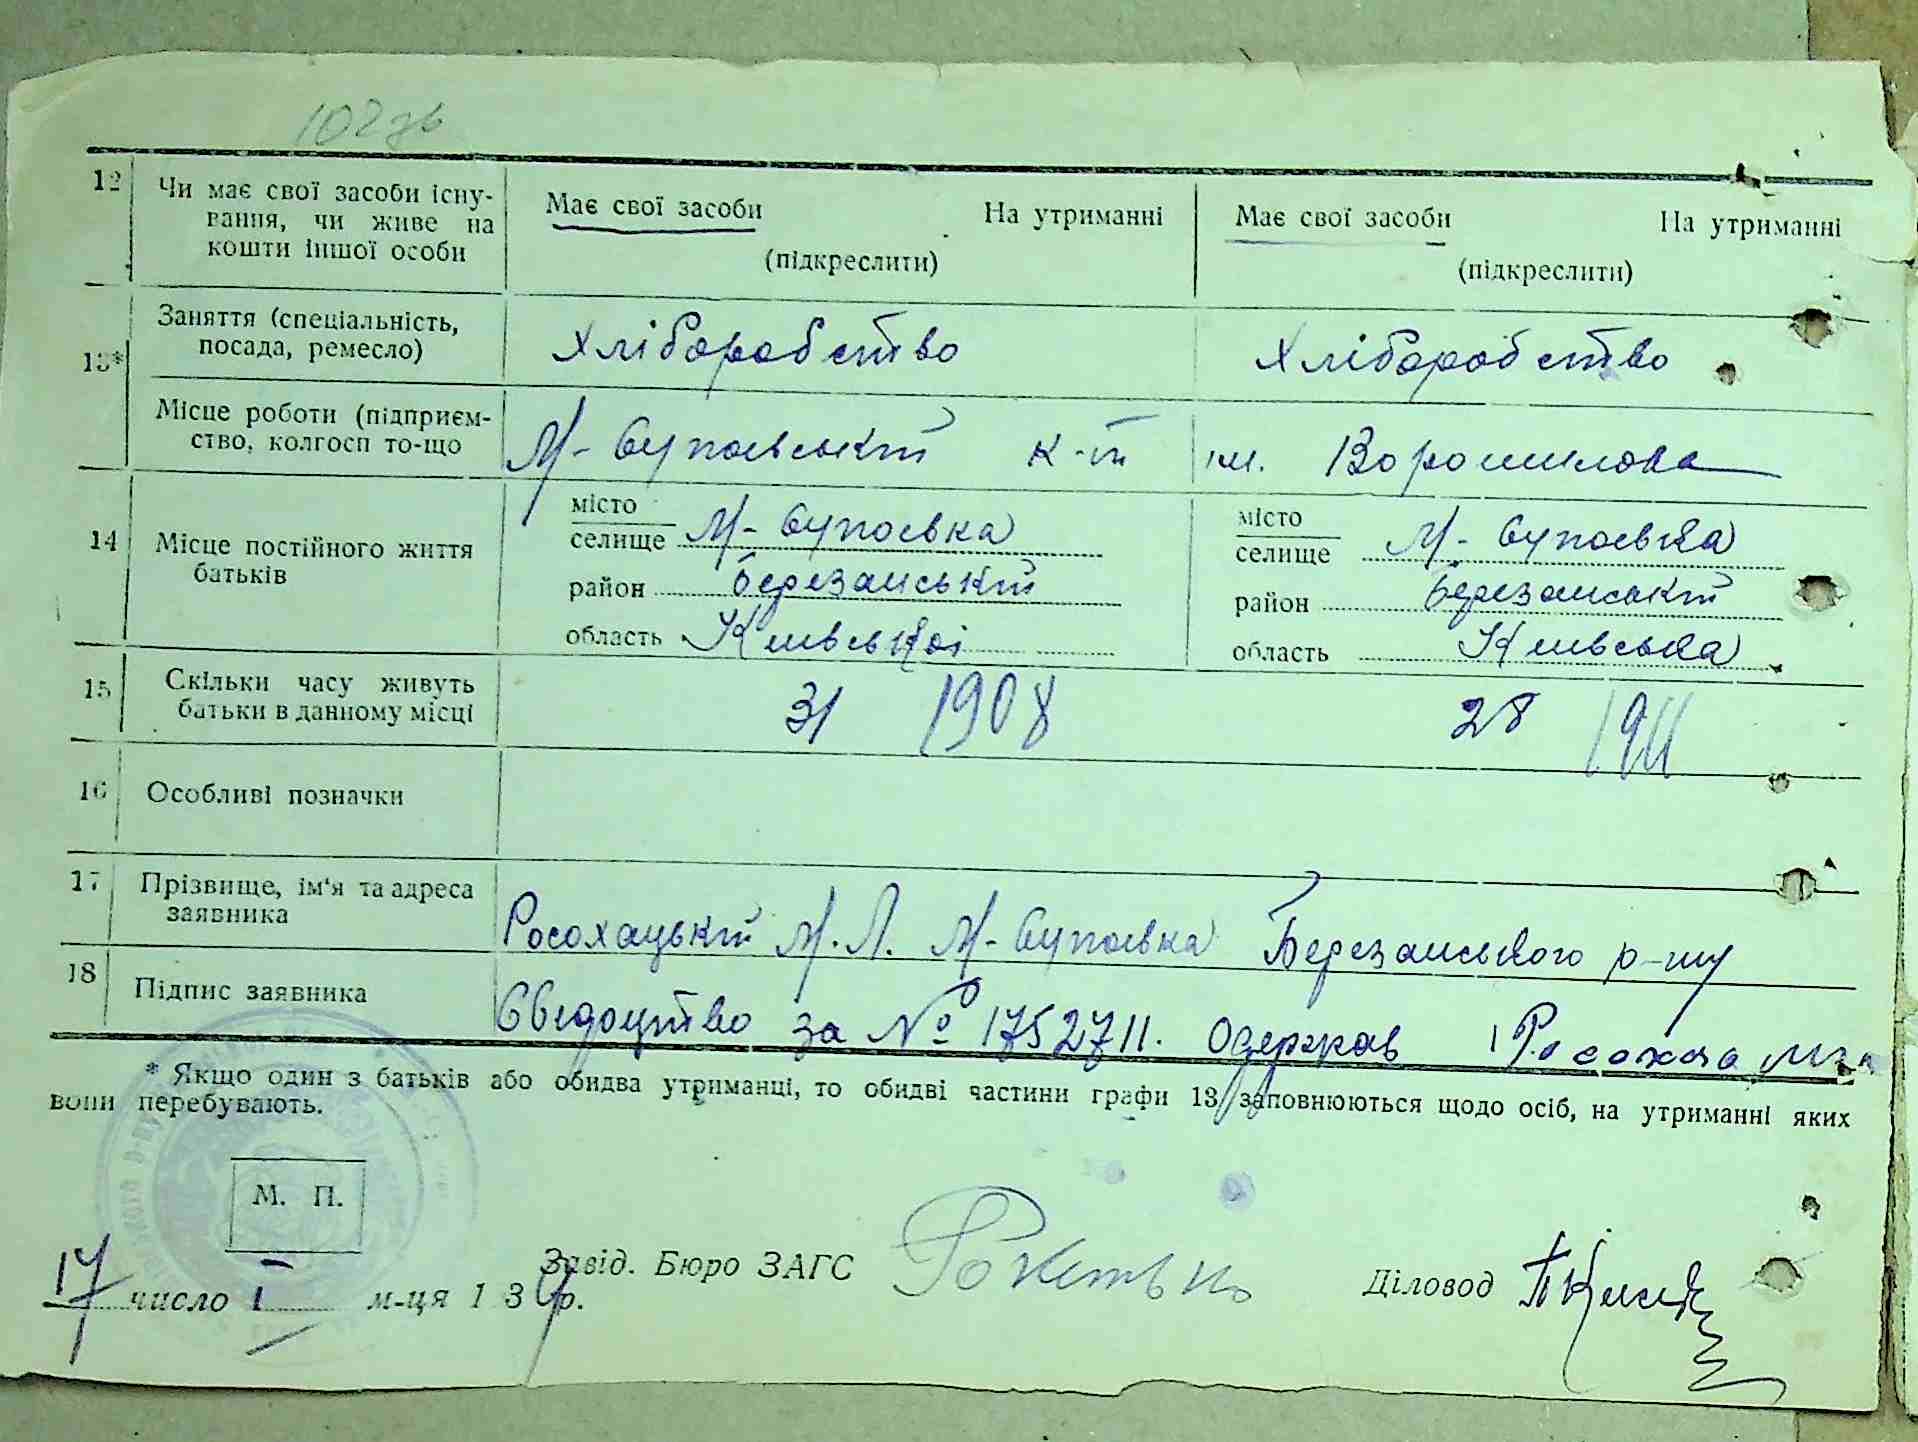 102 зв
12 Чи має свої засоби існу-
вання, чи живе на
кошти іншої особи
Має свої засоби На утриманні
(підкреслити)
Має свої засоби На утриманні
(підкреслити)
13*
Заняття (спеціальність,
посада, ремесло)
Хліборобство Хліборобство
Місце роботи (підприєм-
ство, колгосп то-що
М-Супоєвський к-п ім. Ворошилова
14 Місце постійного життя
батьків
місто
селище М-Супоєвка
район Березанський
область Київської
місто
селище М-Супоєвка
район Березанський
область Київська
15 Скільки часу живуть
батьки в данному місці
31 1908 28 1911
16 Особливі позначки
17 Прізвище, ім'я та адреса
заявника
Росохацький М.Л. М-Супоєвка Березанського р-ну
18 Підпис заявника
Свідоцтво за № 1752711. Одержав
* Якщо один з батьків або обидва утриманці, то обидві частини графи 13 заповнюються щодо осіб, на утриманні яких
вони перебувають.
М. П.
17 число І м-ця 1939 р.
Завід. Бюро ЗАГС
Діловод